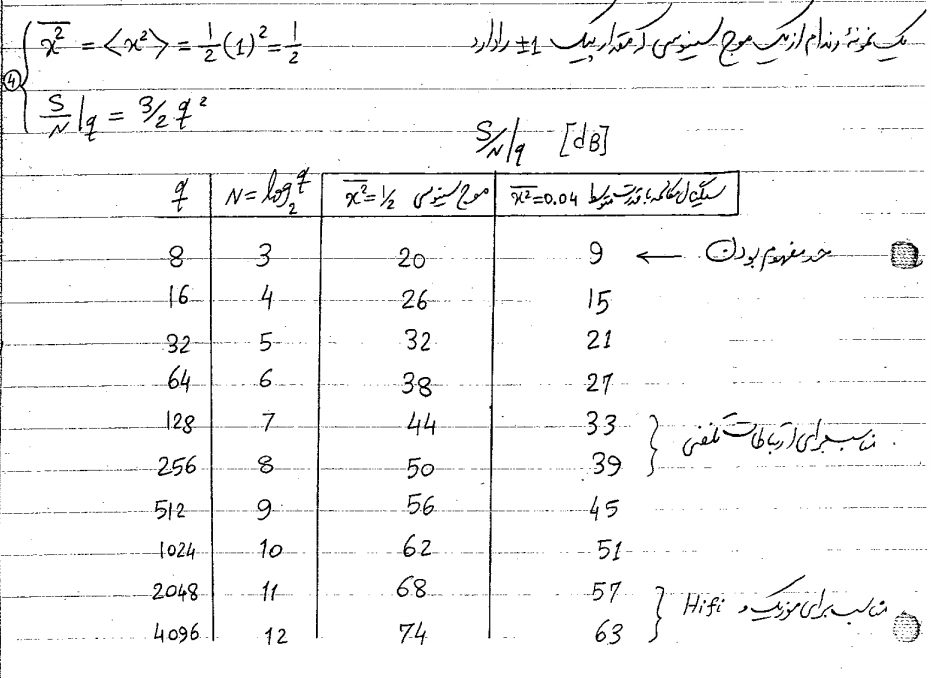 یک نمونهٔ رندام از یک موج سینوسی که مقدار پیک ±1 را دارد
④ { x̄² = <x²> = 1/2 (1)² = 1/2
S/N|q = 3/2 q²
S/N|q [dB]
q | N = log₂ q | موج سینوسی x̄² = 1/2 | سیگنال مکالمه با قدرت متوسط x̄² = 0.04
8 3 20 9 ← حد مفهوم بودن
16 4 26 15
32 5 32 21
64 6 38 27
128 7 44 33 } مناسب برای ارتباطات تلفنی
256 8 50 39
512 9 56 45
1024 10 62 51
2048 11 68 57 } مناسب برای موزیک و Hifi
4096 12 74 63